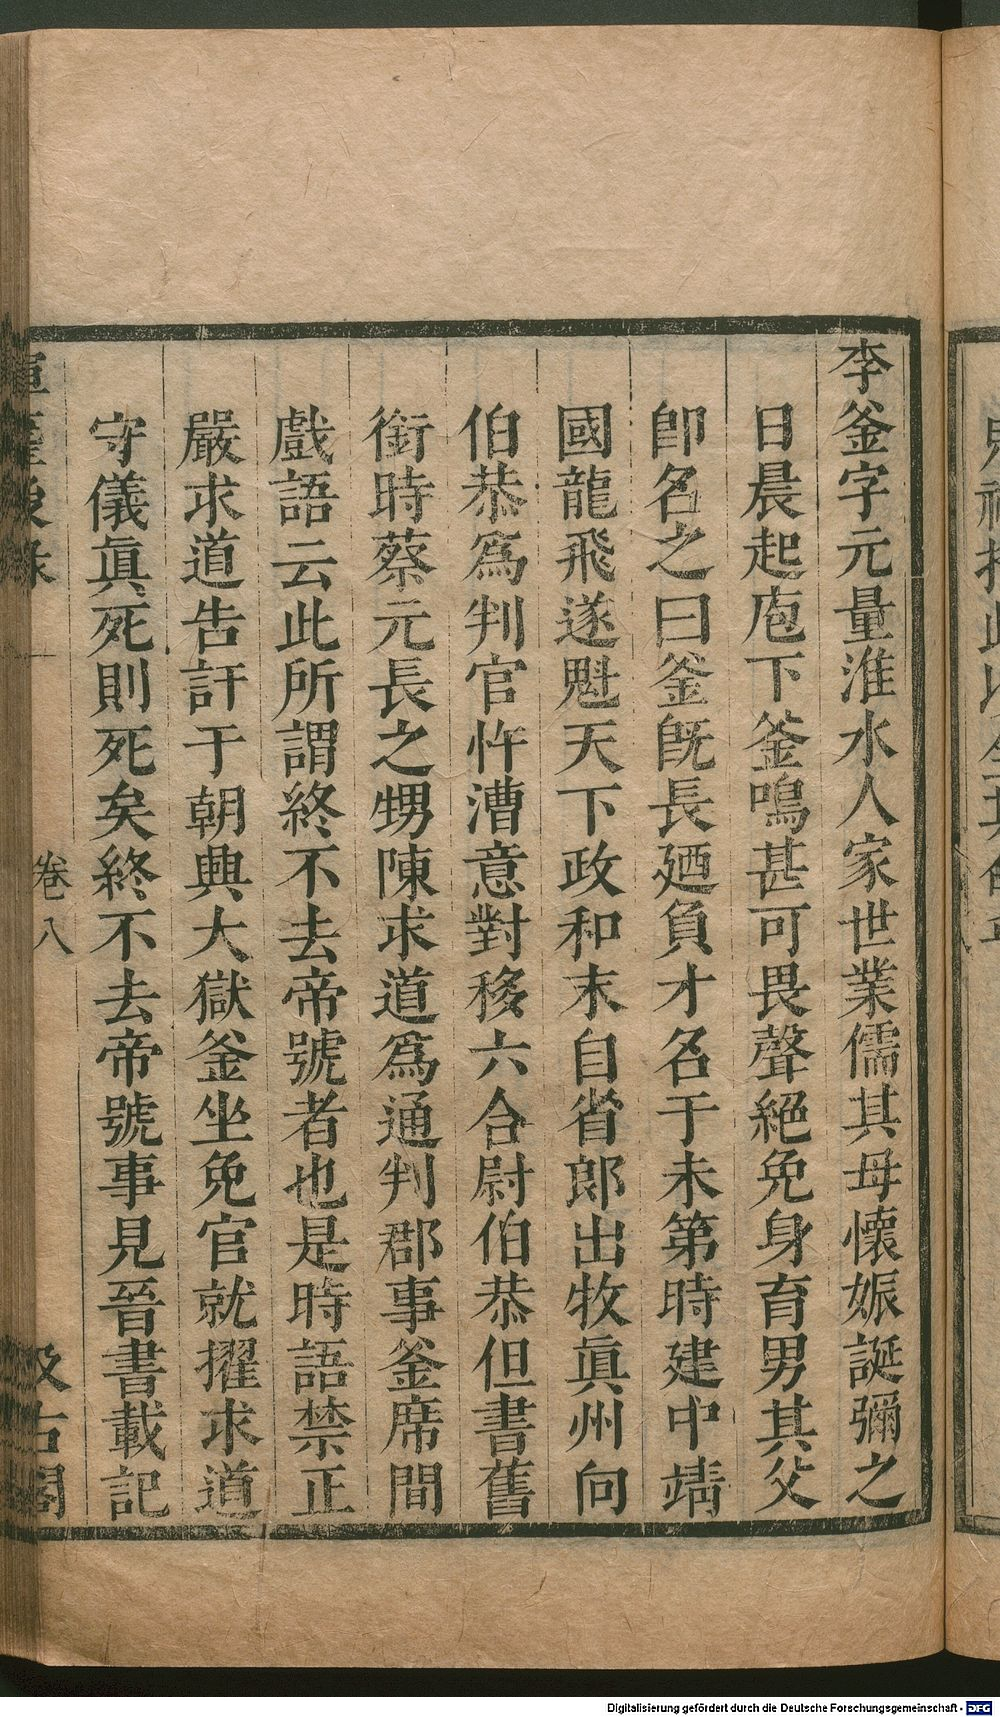 李釜字元量淮水人家世業儒其母懷娠誕彌之
日晨起庖下釜鳴甚可畏聲絕免身育男其父
卽名之曰釜旣長廼負才名于未第時建中靖
國龍飛遂魁天下政和末自省郎出牧眞州向
伯恭爲判官忤漕意對移六合尉伯恭但書舊
銜時蔡元長之甥陳求道爲通判郡事釜席間
戲語云此所謂終不去帝號者也是時語禁正
嚴求道告訐于朝興大獄釜坐免官就擢求道
守儀眞死則死矣終不去帝號事見晉書載記
卷八
汲古閣
Digitalisierung gefördert durch die Deutsche Forschungsgemeinschaft - DFG